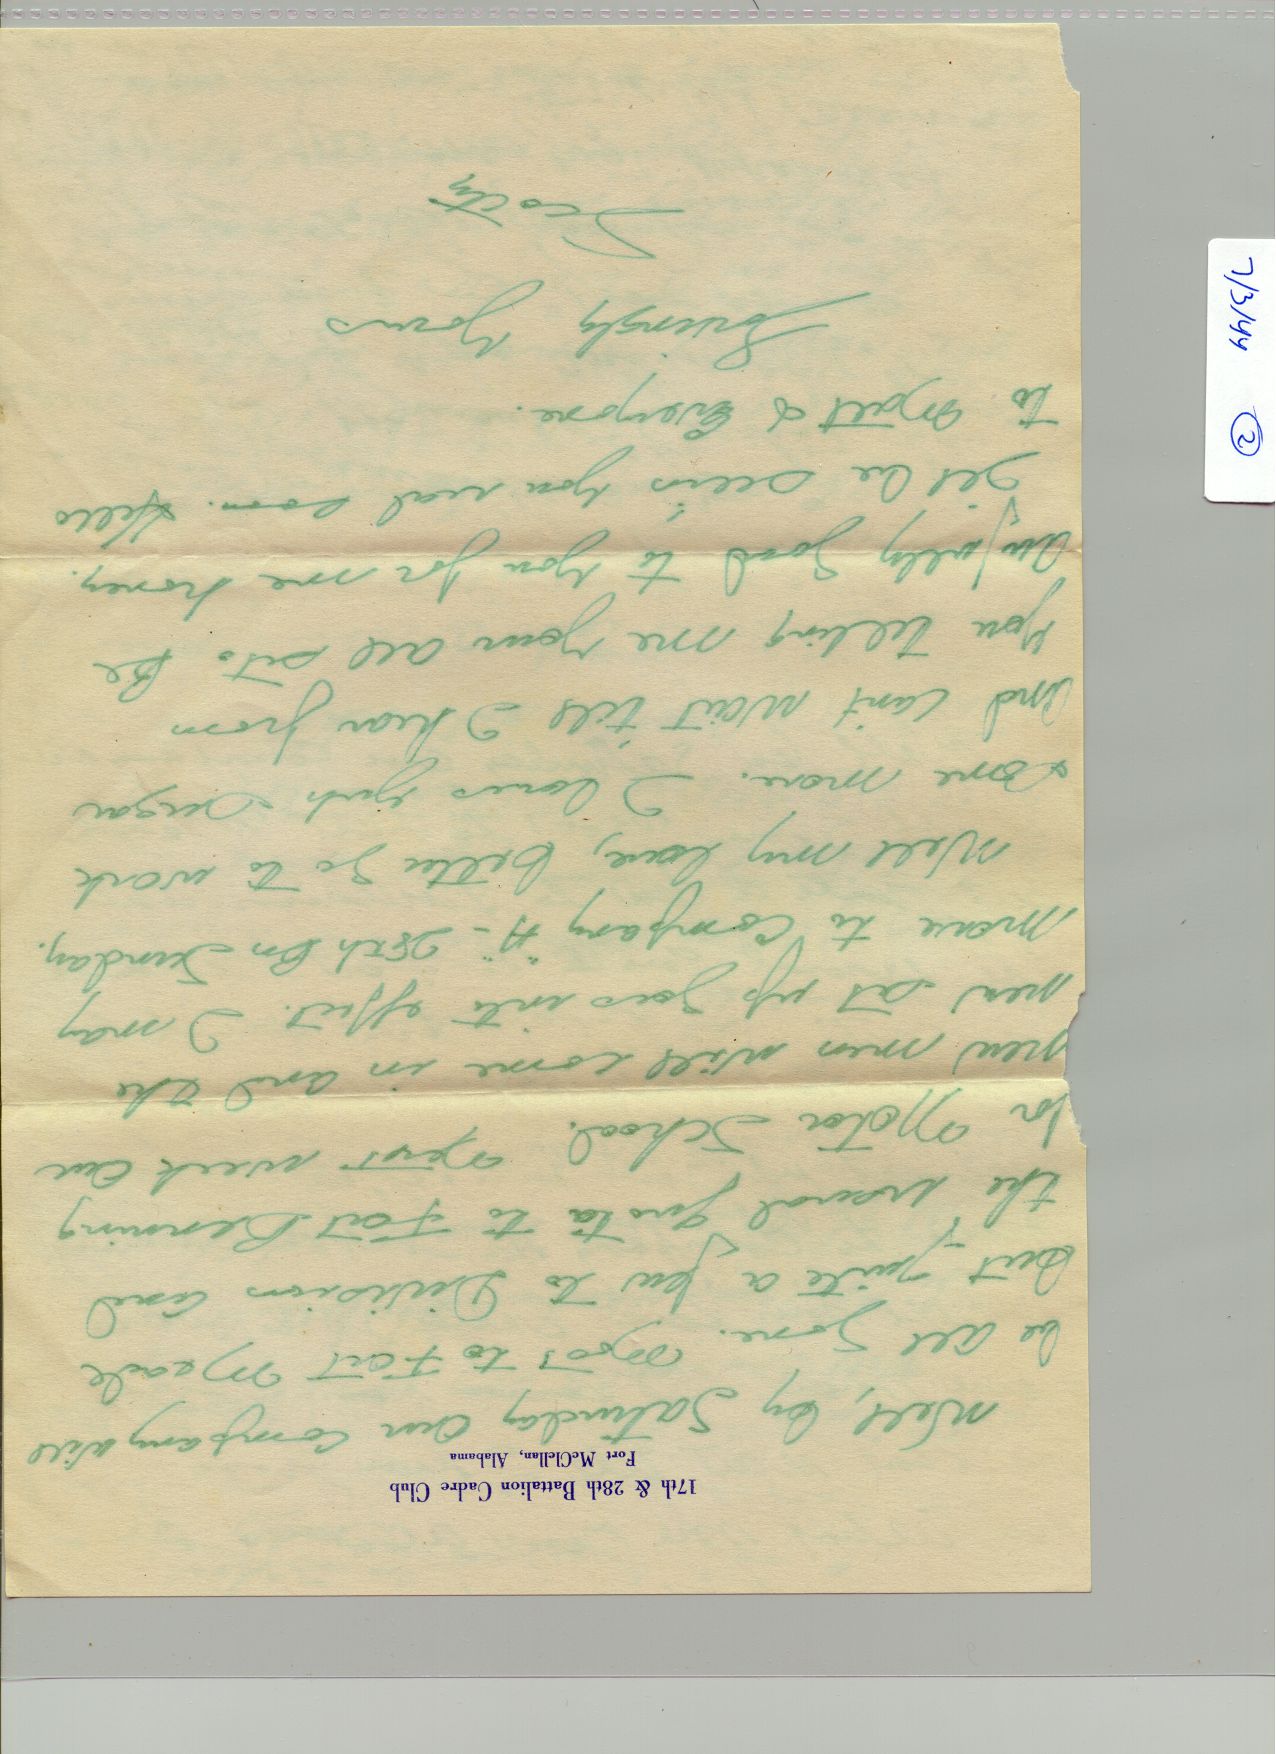 17th & 28th Battalion Cadre Club
Fort McClellan, Alabama
Well, by Saturday our Company will
be all gone. Most to Fort Meade
but quite a few to Divisions and
the usual quota to Fort Benning
for Motor School. Next week our
new men will come in and the
new set up goes into effect. I may
move to Company "A" - 28th Bn Sunday.
Well my love, better go to work
some more. I loves yuh Sugar
and can't wait till I hear from
you telling me your all set to be
awfully good to you for me honey.
I'll be seeing you real soon. Hello
to Matt & Everyone.
Lovingly Yours
Scotty
7/3/44 2